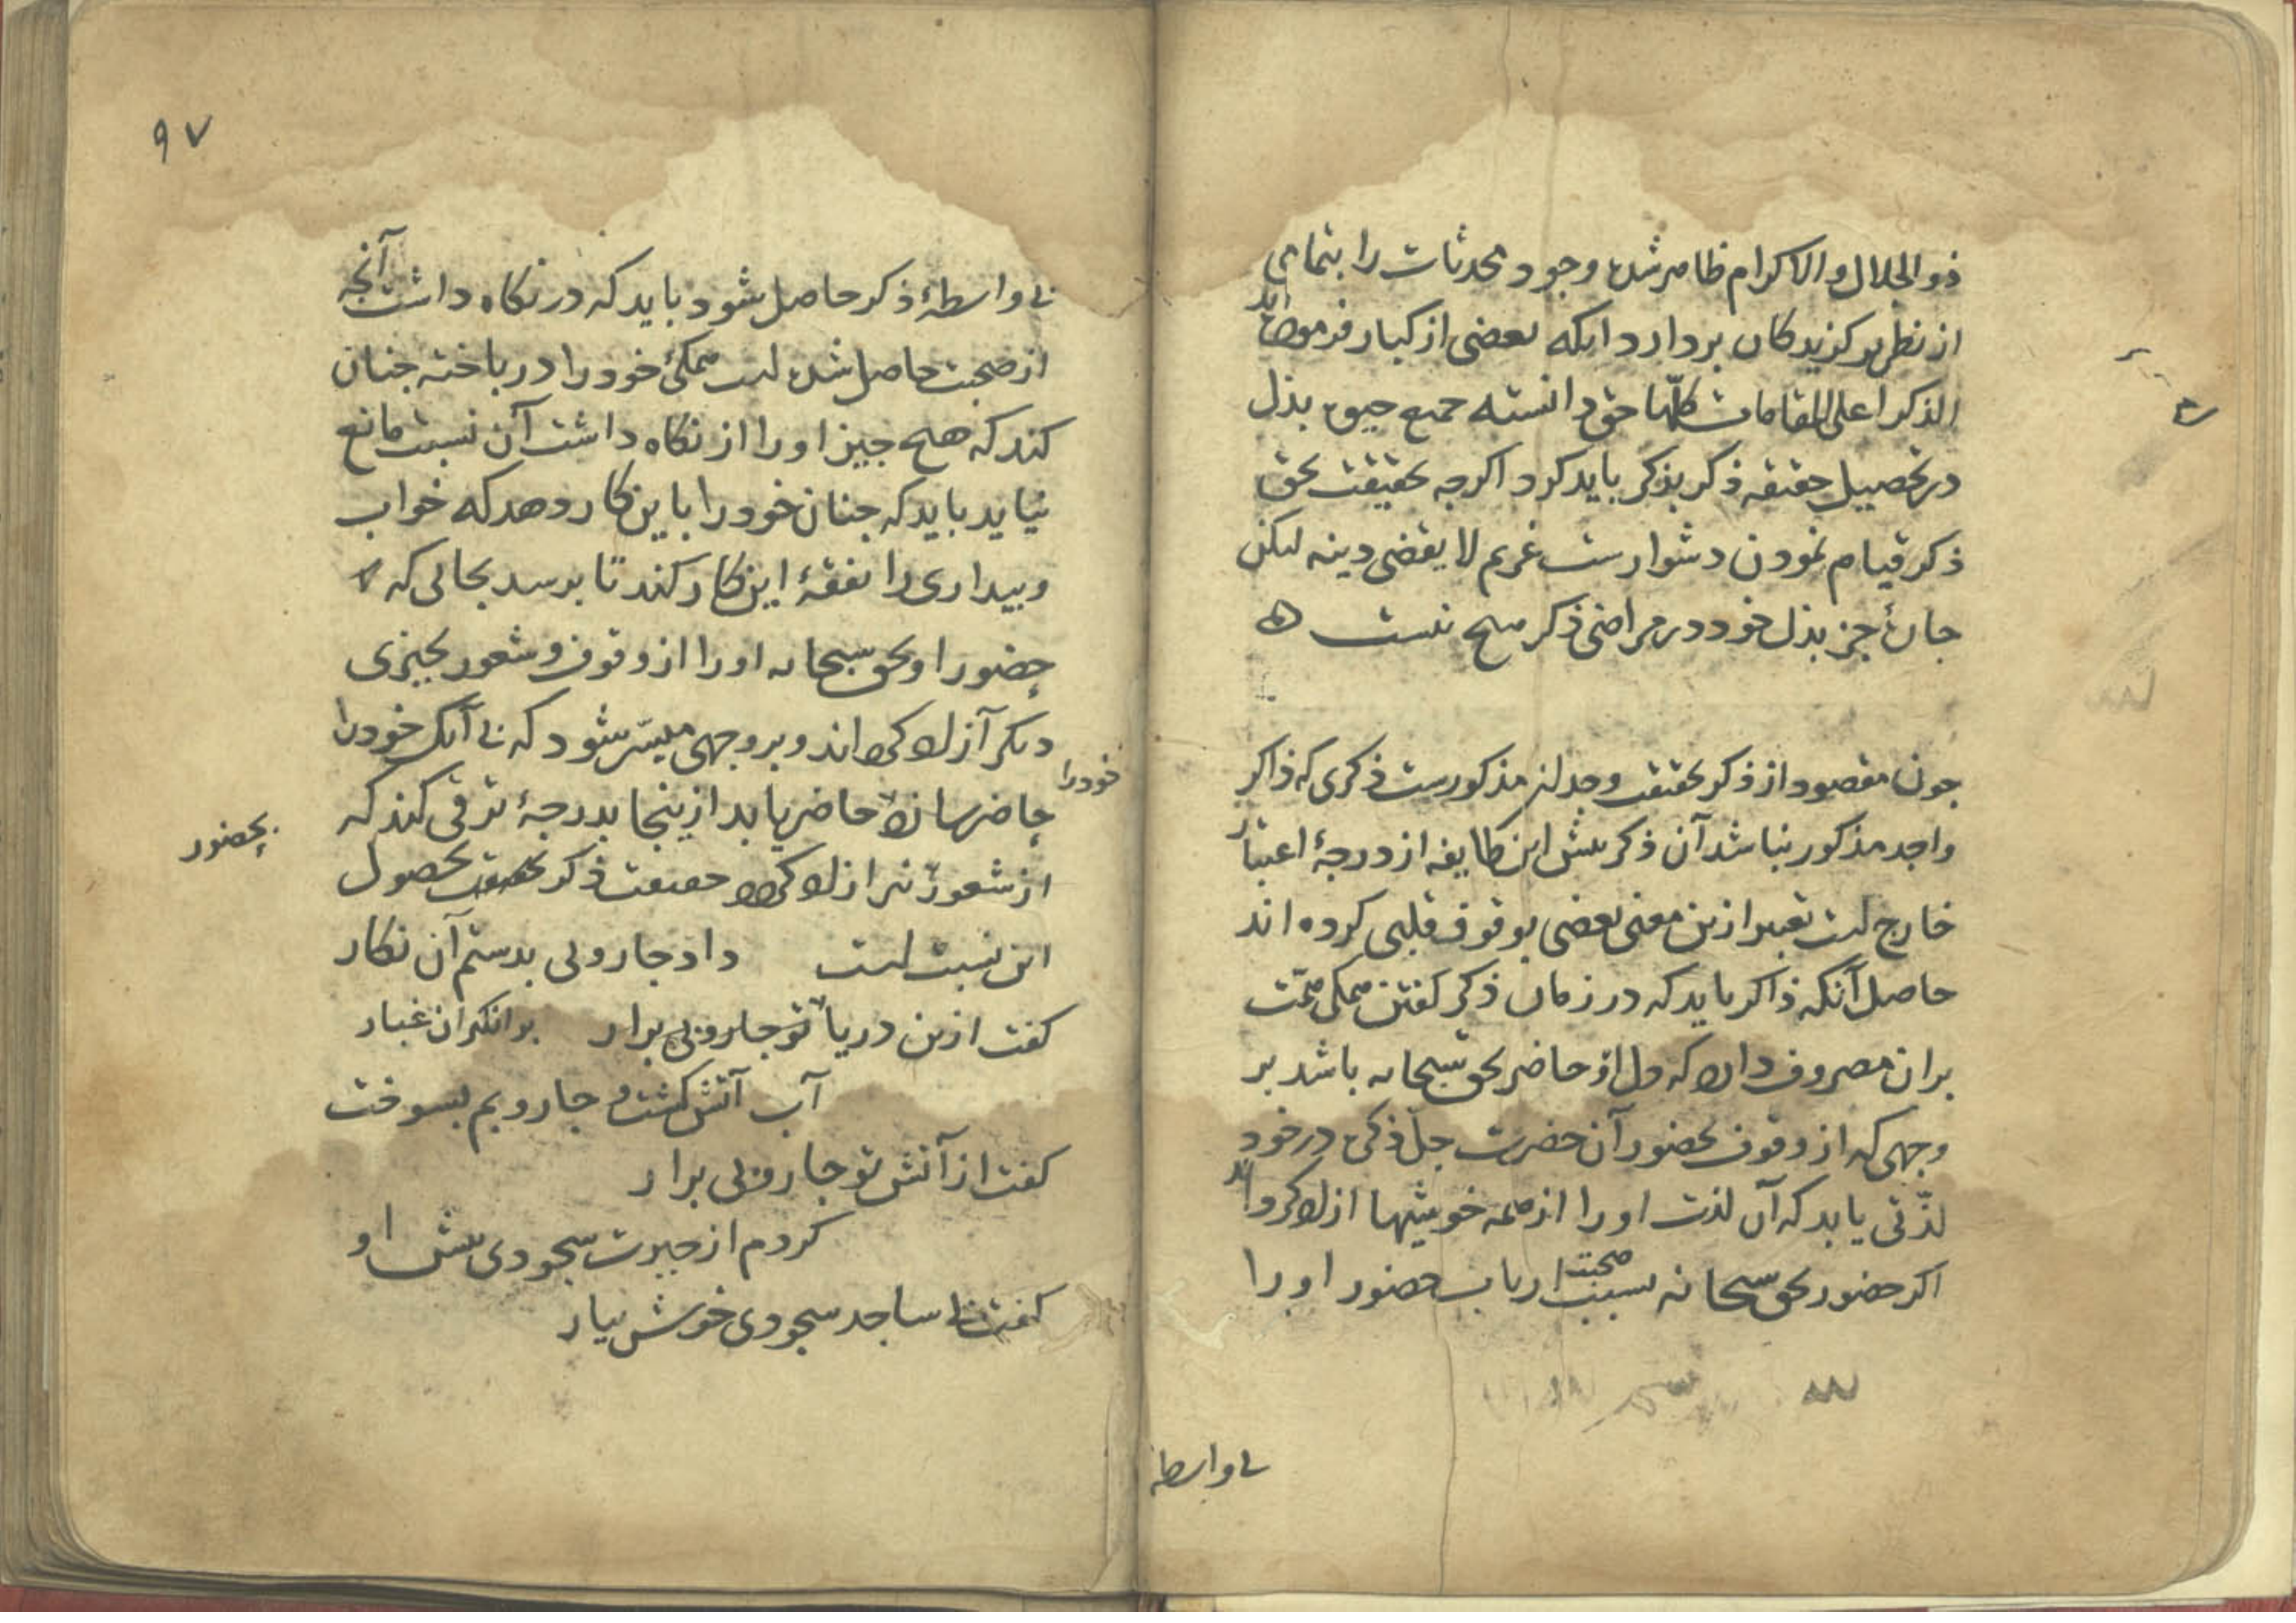 ذو الجلال والاکرام ظاهر شده وجود محدثات را بتمامی
از نظر برکزیدکان بردارد انکه بعضی از کبار فرموده اند
الذکر اعلی المقامات کلّها حق دانسته جمیع حیوة بذل
در تحصیل حقیقة ذکر بذکر باید کرد اکرچه بحقیقت بحق
ذکر قیام نمودن دشوارست غریم لا یقضی دینه لیکن
جارهٔ جز بذل خود در مراضی ذکر هیچ نیست ه
جون مقصود از ذکر بحقیقت وجدان مذکورست ذکری که ذاکر
واجد مذکور نباشد آن ذکر پیش این طایفه از درجهٔ اعتبار
خارج است تعبیر ازین معنی بعضی بوقوف قلبی کرده اند
حاصل آنکه ذاکر باید که در زمان ذکر کفتن همکی همّت
بران مصروف دارد که دل او حاضر بحق سبحانه باشد بر
وجهی که از وقوف بحضور آن حضرت جلّ ذکره در خود
لذّتی یابد که آن لذت او را از همه خوشیها ازاد کرداند
اکر حضور بحق سبحانه بسبب صحبت ارباب حضور او را
بی واسطه
۹۷
بی واسطهٔ ذکر حاصل شود باید که در نکاه داشت آنچه
از صحبت حاصل شده است همکئ خود را درباخته جنان
کند که هیچ جیز او را از نکاه داشت آن نسبت مانع
نیاید باید که جنان خود را باین کار دهد که خواب
و بیداری را نفقهٔ این کار کند تا برسد بحالی که
حضور او بحق سبحانه او را از وقوف و شعور بجیزی
دیکر آزاد کرداند و بر وجهی میسّر شود که بی آنک خود را
خود را
حاضر ساند حاضر یابد از ینجا بدرجهٔ ترقی کند که
بحضور
از شعور نیز ازاد کردد حقیقت ذکر بحقیقت حصول
این نسبت است داد جاروبی بدستم آن نکار
کفت ازین دریا تو جاروبی برار برانکیزان غبار
آب آتش کشت و جاروبم بسوخت
کفت از آتش تو جاروبی برار
کردم از حیرت سجودی پیش او
کفت بی ساجد سجودی خوش بیار